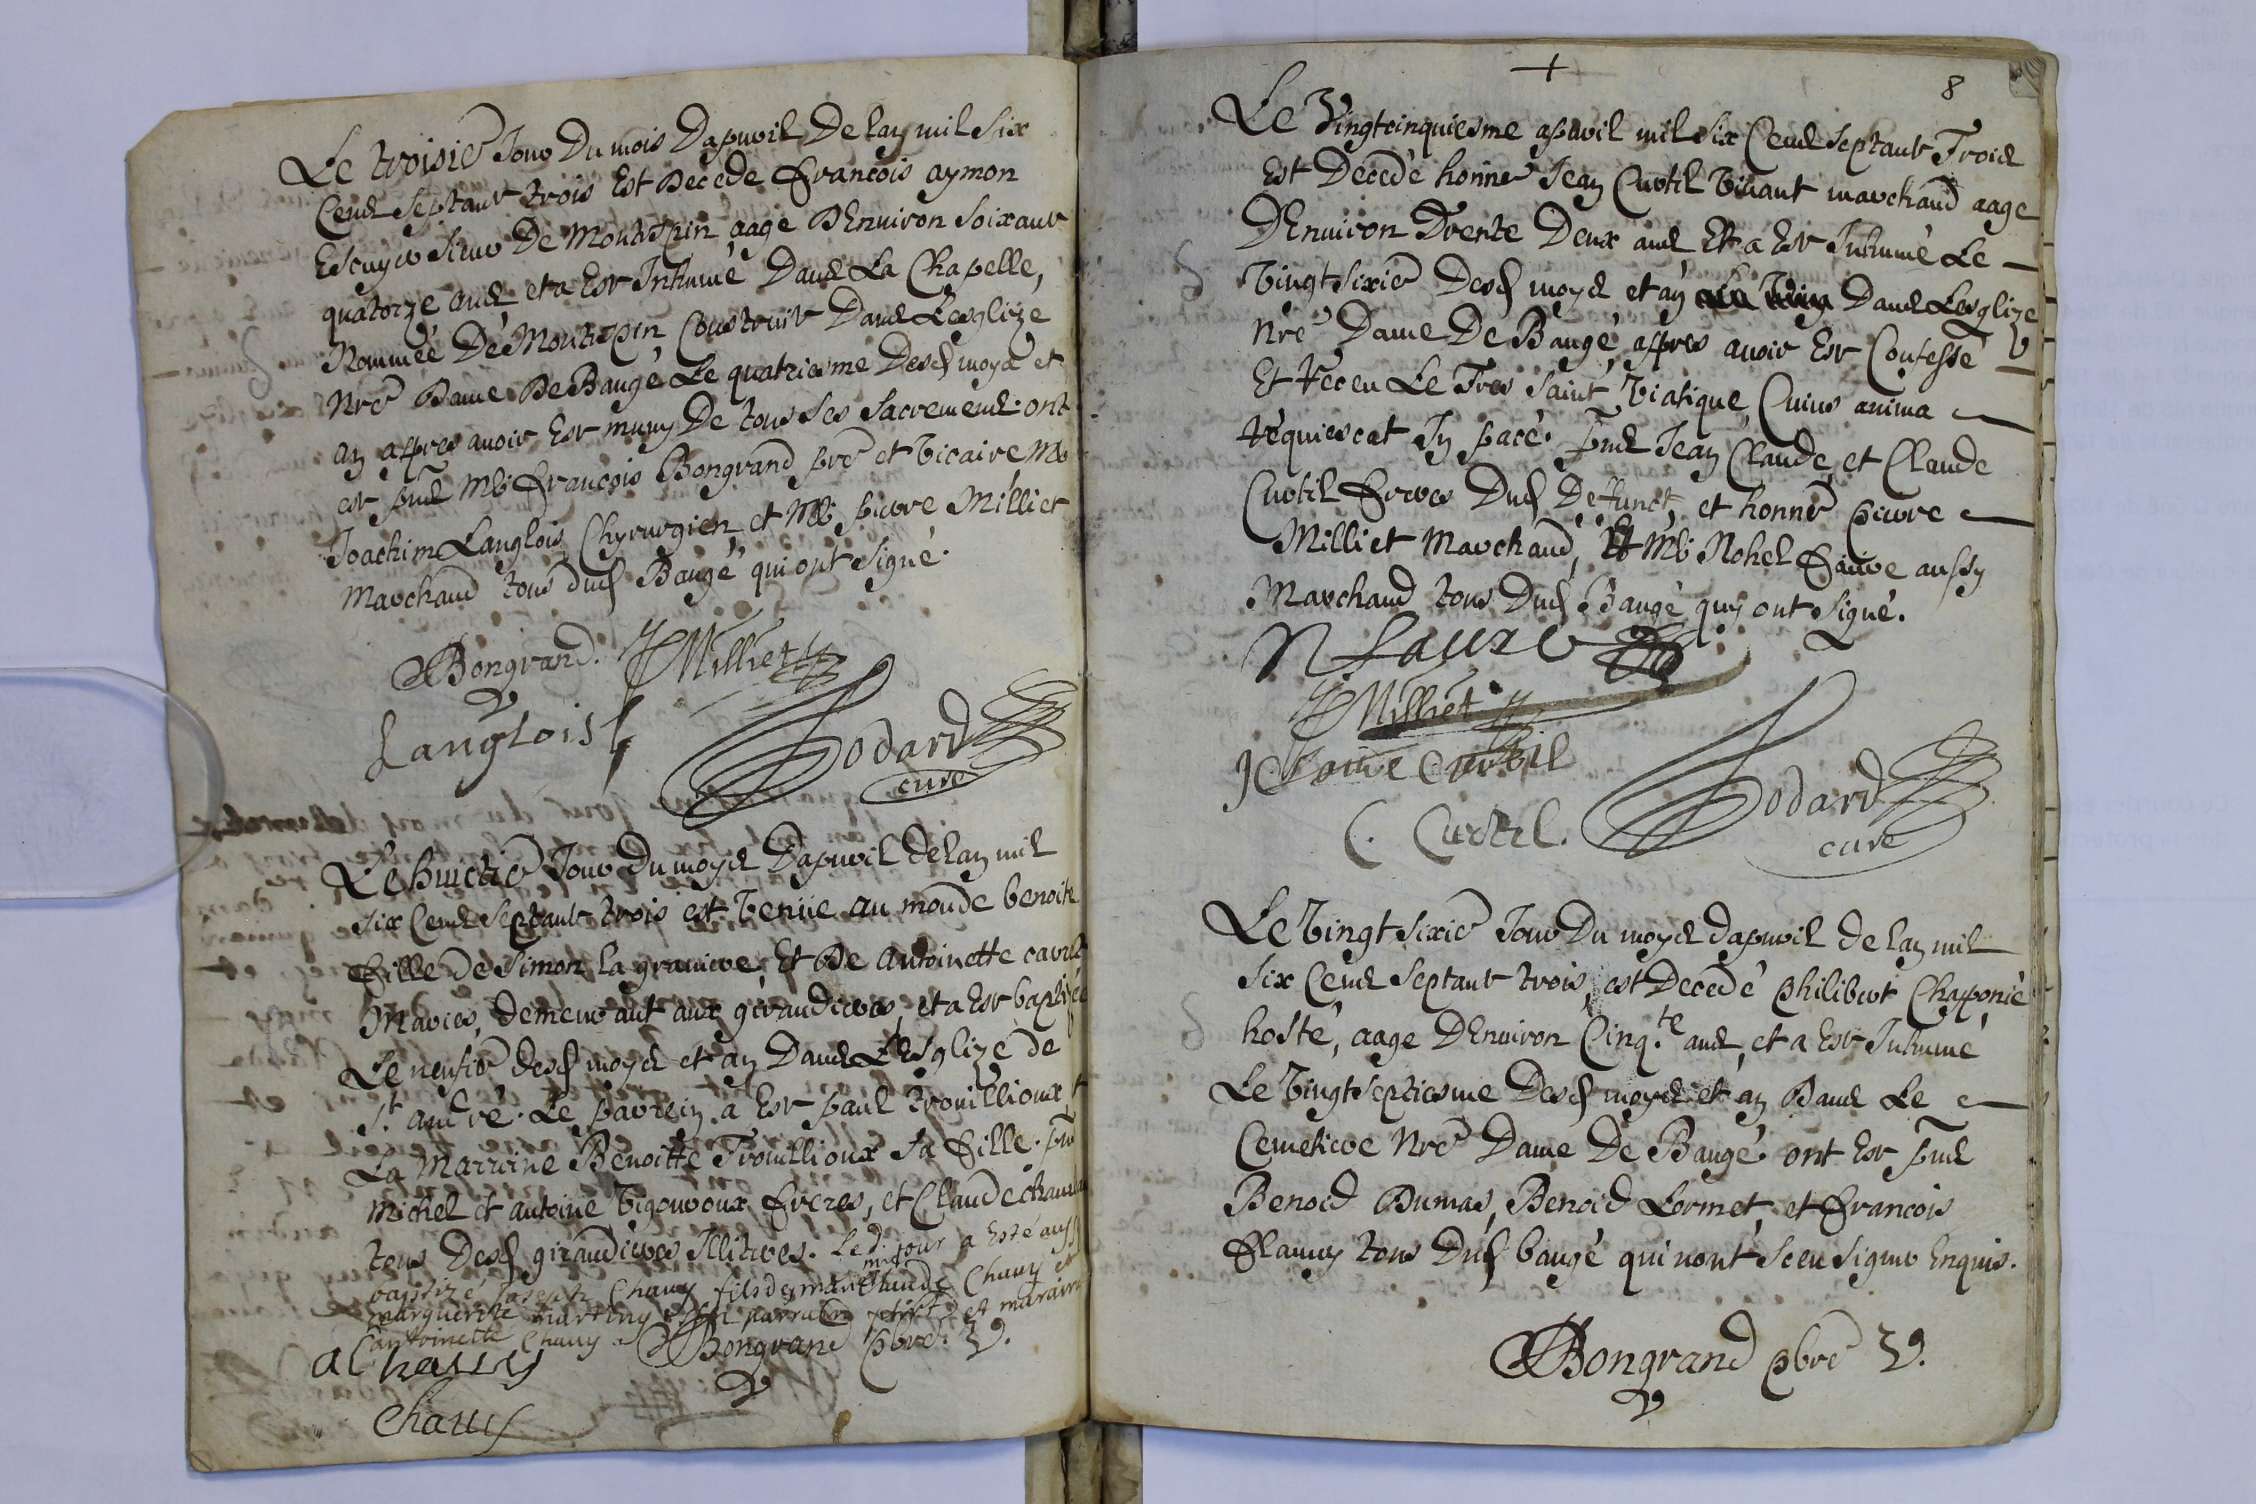 Le troisie Jour Du mois Dapvril De lan mil six
Cend septante trois Est Decede François aymon
Escuyer sieur De Montespin aage DEnviron soixante
quatorze and et a Esté Inhumé Dand La Chapelle,
Nommée De Montespin Construite Dand Lesglize
Nre Dame De Baugé Le quatriesme Desd moyd et
an appres avoir Esté muny De tous ses sacremend. ont
esté pnd Mre François Bongrand pre et Vicaire Me
Joachim Langlois Chyrurgien et Me pierre Milliet
Marchand tous dud Baugé qui ont signé.
Bongrand. P Milliet
Langlois
Godard
curé
Le huictie Jour Du moyd Dapvril de lan mil
six Cend septante trois est Venüe au monde benoite
Fille de Simon la graviere, Et De Antoinette
Maries, demeurant aux girandieres, et a Esté baptizée
Le neufie desd moyd et an Dand LEsglize de
St André. Le parrein a Esté paul trouillioux et
La Marrine Benoitte Trouillioux sa Fille. pnt
Michel et antoine Vigouroux Freres, et Claude
tous Desd girandieres Illiteres. Led. jour a Esté aussy
baptizé Joseph Chauy fils de mre Claude Chauy et
marguerite martiny parrain et maraine
antoinette Chauy
Bongrand pbre. V.
A Chauuy
Chauuy
8
Le Vingtcinquiesme apvril mil six Cend septante Troid
Est Decedé honne Jean Curtil Vivant marchand aage
DEnviron Trente Deux and Et a Esté Inhumé Le
Vingt sixie Desd moyd et an Dand Lesglize
Nre Dame De Baugé, appres avoir Esté Confessé
Et Receu Le Tres Saint Viatique, Cuius anima
Requiescat In pace. pnd Jean Claude, et Claude
Curtil Freres Dud Deffunct, et honne pierre
Milliet Marchand, Et Me Nohel Faivre aussy
Marchand tous Dud Baugé quy ont signé.
N Faure
P Milliet
J Claude Curtil
C. Curtil.
Godard
curé
Le Vingt sixie Jour Du moyd dapvril de lan mil
six Cend septante trois, est Decedé philibert Chapponie
hoste, aage DEnviron Cinq.te and, et a Esté Inhumé
Le Vingt septiesme Desd moyd et an Dand Le
Cemetiere Nre Dame De Baugé ont Esté pnd
Benoid Dumas, Benoid Lormet, et François
Flamy tous Dud baugé qui nont sceu signer Enquis.
Bongrand pbre V.